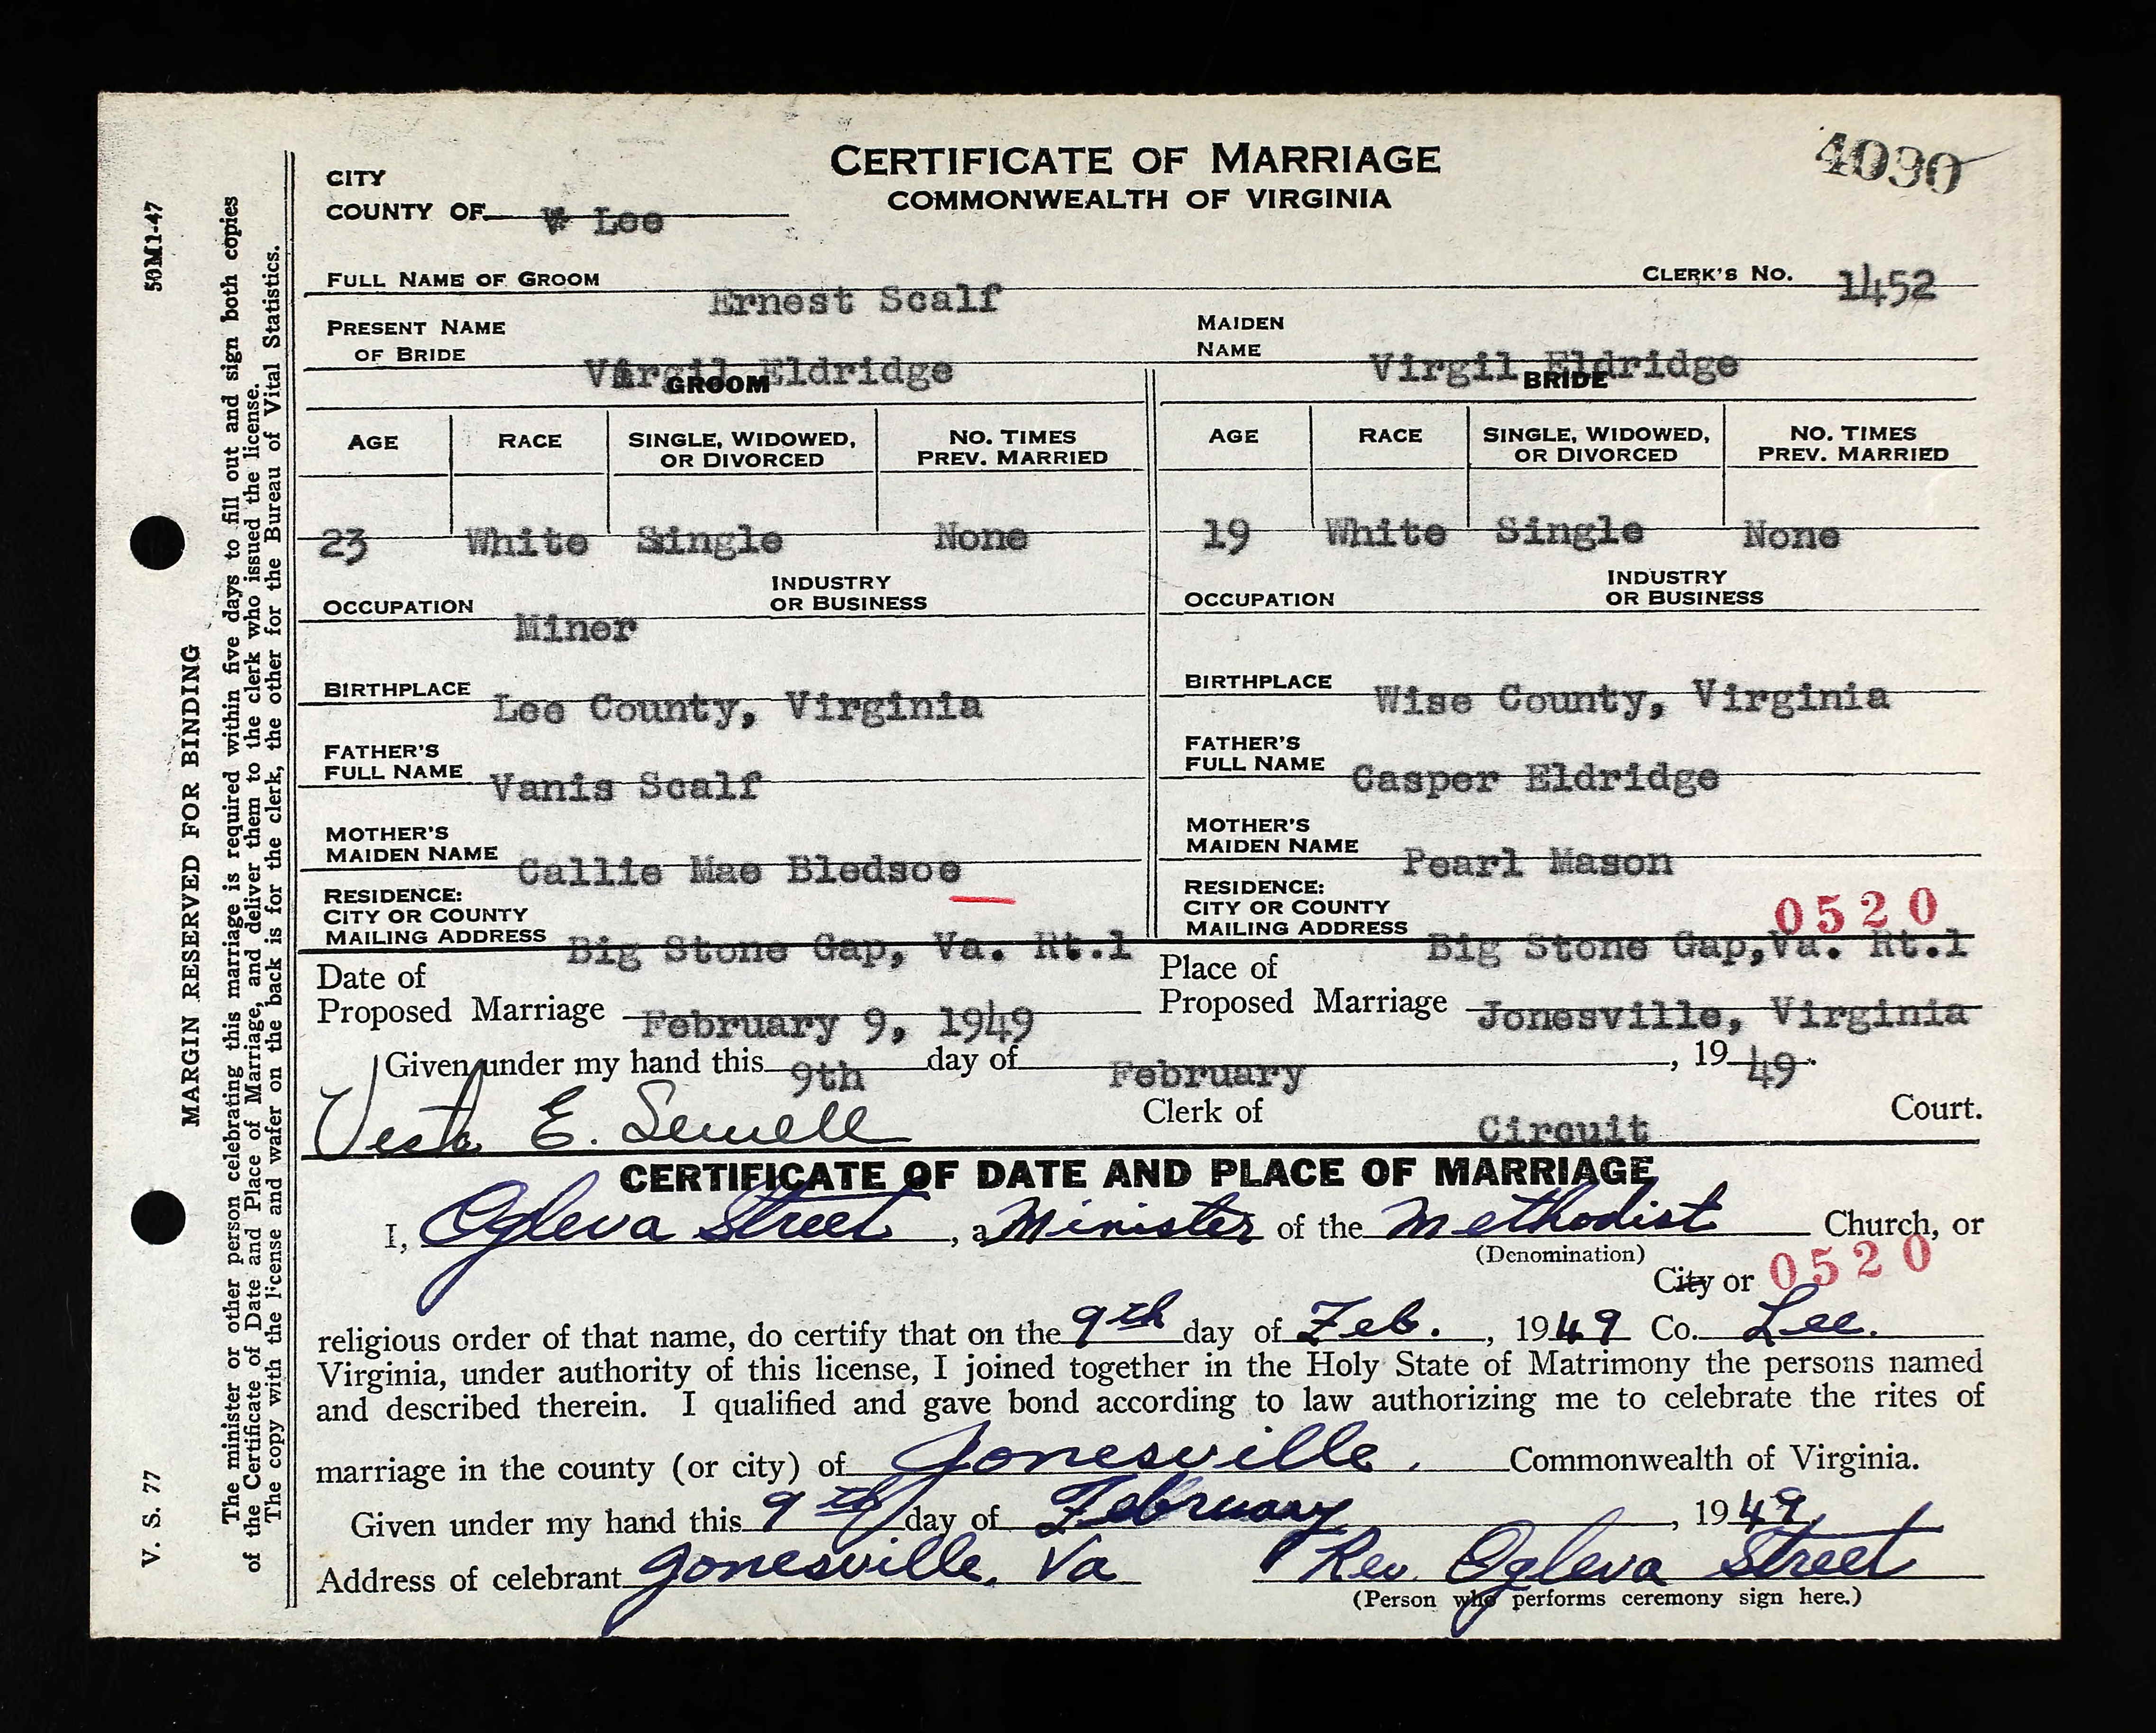 CERTIFICATE OF MARRIAGE
COMMONWEALTH OF VIRGINIA
4090
CITY
COUNTY OF Lee
FULL NAME OF GROOM Ernest Scalf CLERK'S No. 1452
PRESENT NAME OF BRIDE Virgil Eldridge MAIDEN NAME Virgil Eldridge
GROOM BRIDE
AGE RACE SINGLE, WIDOWED, OR DIVORCED NO. TIMES PREV. MARRIED AGE RACE SINGLE, WIDOWED, OR DIVORCED NO. TIMES PREV. MARRIED
23 White Single None 19 White Single None
OCCUPATION Miner INDUSTRY OR BUSINESS OCCUPATION INDUSTRY OR BUSINESS
BIRTHPLACE Lee County, Virginia BIRTHPLACE Wise County, Virginia
FATHER'S FULL NAME Vanis Scalf FATHER'S FULL NAME Casper Eldridge
MOTHER'S MAIDEN NAME Callie Mae Bledsoe MOTHER'S MAIDEN NAME Pearl Mason
RESIDENCE: CITY OR COUNTY MAILING ADDRESS Big Stone Gap, Va. Rt.1 RESIDENCE: CITY OR COUNTY MAILING ADDRESS Big Stone Gap,Va. Rt.1
0520
Date of Proposed Marriage February 9, 1949 Place of Proposed Marriage Jonesville, Virginia
Given under my hand this 9th day of February, 1949.
Vesta E. Sewell Clerk of Circuit Court.
CERTIFICATE OF DATE AND PLACE OF MARRIAGE
I, Ogleva Street, a Minister of the Methodist Church, or
(Denomination)
City or 0520
religious order of that name, do certify that on the 9th day of Feb., 1949 Co. Lee.
Virginia, under authority of this license, I joined together in the Holy State of Matrimony the persons named
and described therein. I qualified and gave bond according to law authorizing me to celebrate the rites of
marriage in the county (or city) of Jonesville. Commonwealth of Virginia.
Given under my hand this 9th day of February, 1949
Address of celebrant Jonesville, Va Rev. Ogleva Street
(Person who performs ceremony sign here.)
50M1-47
V. S. 77
MARGIN RESERVED FOR BINDING
The minister or other person celebrating this marriage is required within five days to fill out and sign both copies
of the Certificate of Date and Place of Marriage, and deliver them to the clerk who issued the license.
The copy with the license and wafer on the back is for the clerk, the other for the Bureau of Vital Statistics.